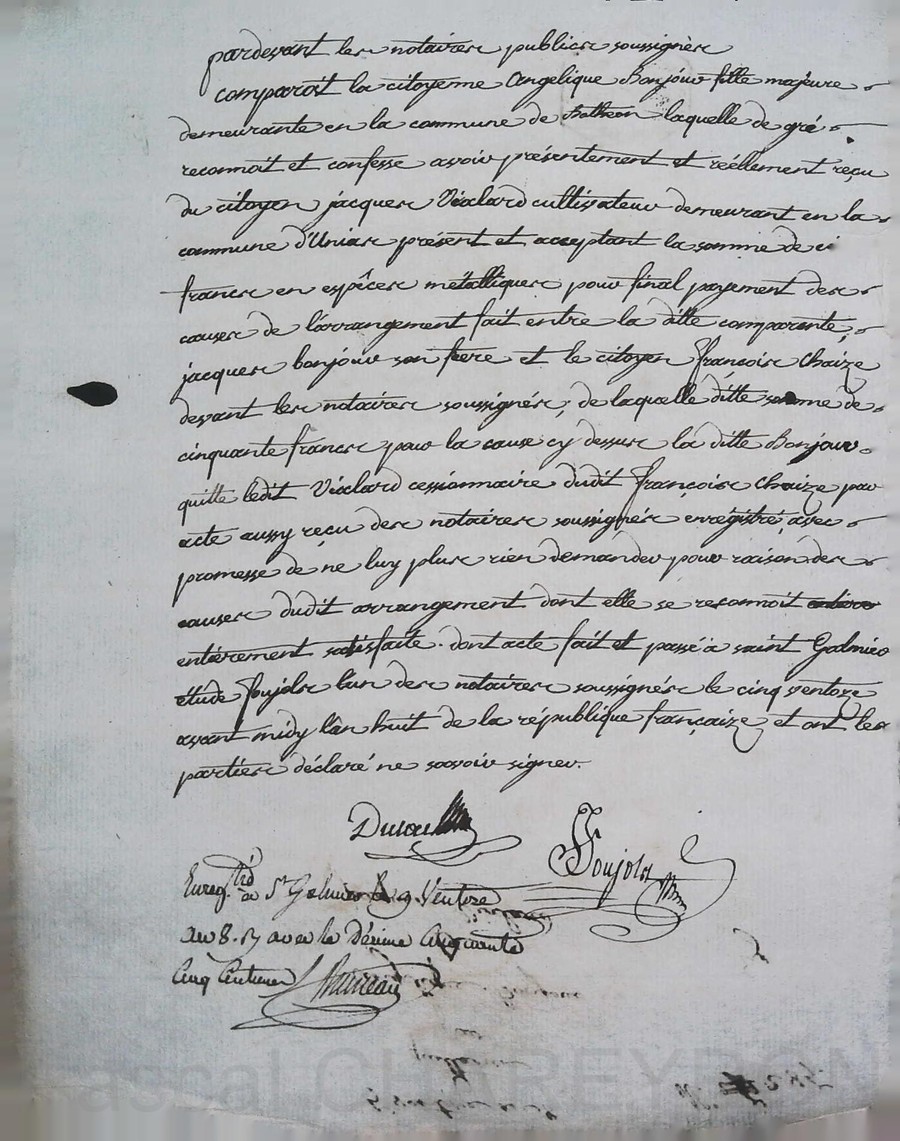 pardevant les notaires publics soussignés
comparoît la citoyenne Angelique Bonjour fille majeure
demeurante en la commune de laquelle de gré
reconnoit et confesse avoir présentement et réellement reçu
du citoyen jacques Vialard cultivateur demeurant en la
commune d'Unias présent et acceptant la somme de
francs en espêces métalliques pour final payement des
causes de l'arrangement fait entre la ditte comparante,
jacques bonjour son frere et le citoyen françois Chaize
devant les notaires soussignés; de laquelle ditte somme de
cinquante francs pour la cause cy dessus la ditte Bonjour
quitte ledit Vialard cessionnaire dudit françois Chaize par
acte aussy reçu des notaires soussignés enregistré, avec
promesse de ne luy plus rien demander pour raison des
causes dudit arrangement dont elle se reconnoit
entièrement satisfaite. dont acte fait et passé à saint Galmier
étude Poujols l'un des notaires soussignés le cinq ventoze
avant midy l'an huit de la république françaize et ont les
parties déclaré ne savoir signer.
Poujols
Enreg.tré à St Galmier le 9 Ventose
an 8. R avec le Décime Cinquante
Cinq Centimes
CHABEYRON